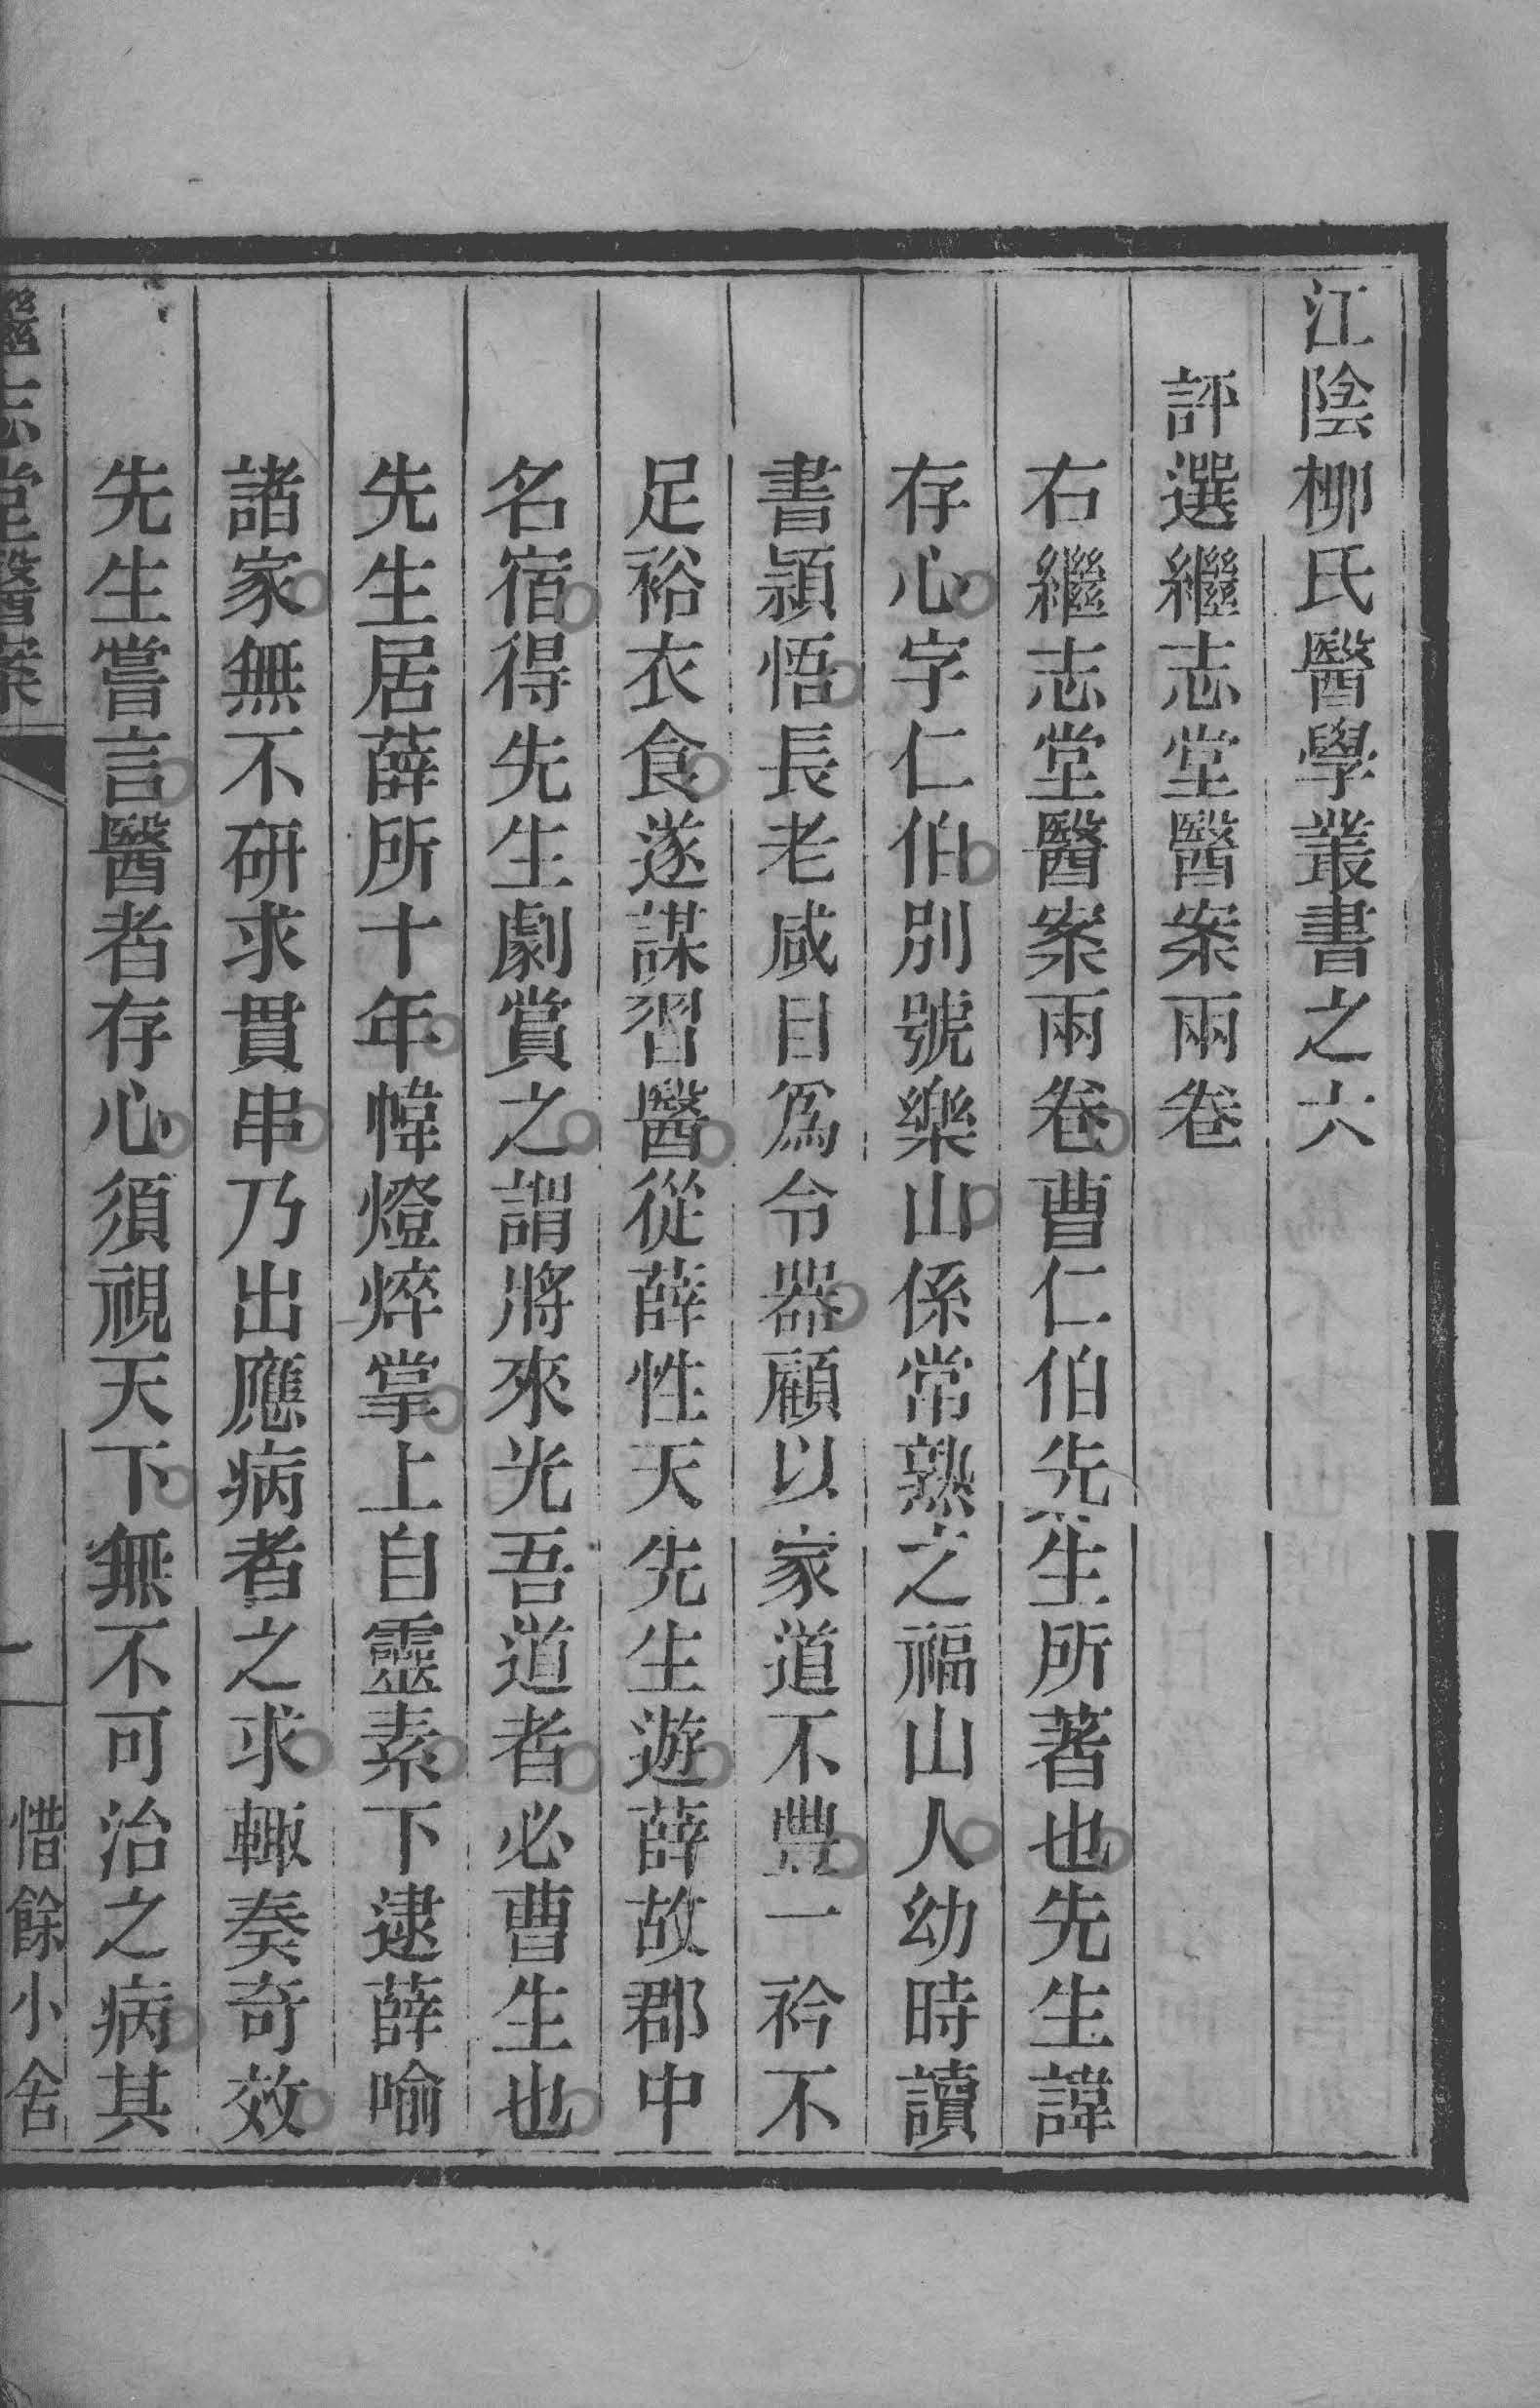 江陰柳氏醫學叢書之六
評選繼志堂醫案兩卷
右繼志堂醫案兩卷曹仁伯先生所著也先生諱
存心字仁伯別號樂山係常熟之福山人幼時讀
書穎悟長老咸目爲令器顧以家道不豐一衿不
足裕衣食遂謀習醫從薛性天先生遊薛故郡中
名宿得先生劇賞之謂將來光吾道者必曹生也
先生居薛所十年幃燈焠掌上自靈素下逮薛喻
諸家無不研求貫串乃出應病者之求輙奏奇效
先生嘗言醫者存心須視天下無不可治之病其
繼志堂醫案
一
惜餘小舍